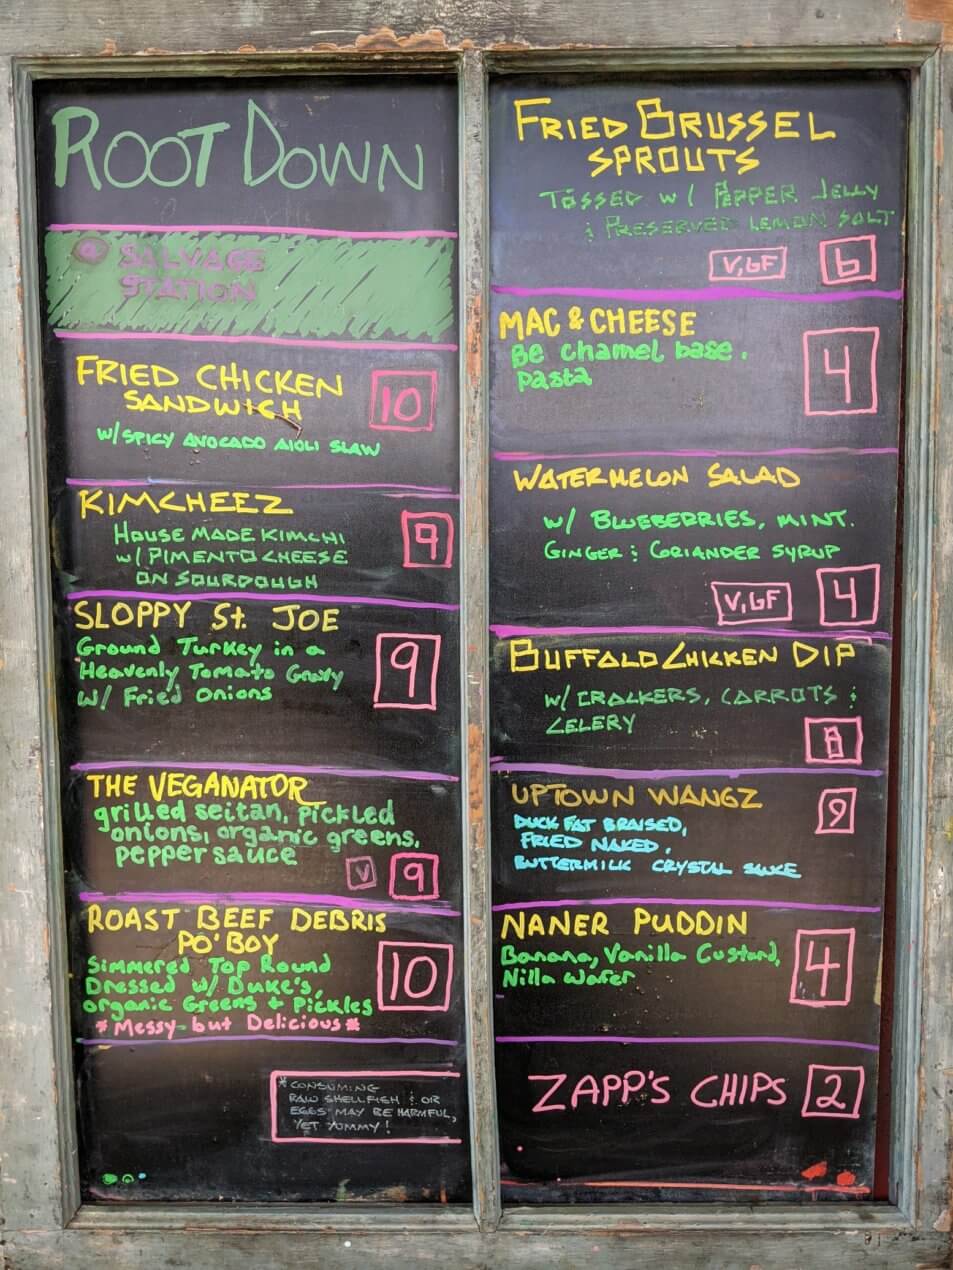 ROOT DOWN
@ SALVAGE
STATION
FRIED CHICKEN
SANDWICH
10
W/SPICY AVOCADO AIOLI SLAW
KIMCHEEZ
HOUSE MADE KIMCHI
W/ PIMENTO CHEESE
ON SOURDOUGH
9
SLOPPY St. JOE
Ground Turkey in a
Heavenly Tomato Gravy
W/ Fried Onions
9
THE VEGANATOR
grilled seitan, pickled
onions, organic greens,
pepper sauce
V
9
ROAST BEEF DEBRIS
PO'BOY
Simmered Top Round
Dressed W/ Duke's,
organic Greens + Pickles
*Messy but Delicious*
10
*CONSUMING
RAW SHELLFISH & OR
EGGS MAY BE HARMFUL,
YET YUMMY!
FRIED BRUSSEL
SPROUTS
TOSSED W/ PEPPER JELLY
& PRESERVED LEMON SALT
V,GF
6
MAC & CHEESE
Be chamel base.
pasta
4
WATERMELON SALAD
W/ BLUEBERRIES, MINT.
GINGER & CORIANDER SYRUP
V,GF
4
BUFFALO CHICKEN DIP
W/ CRACKERS, CARROTS &
CELERY
8
UPTOWN WANGZ
DUCK FAT BRAISED,
FRIED NAKED,
BUTTERMILK CRYSTAL SAUCE
9
NANER PUDDIN
Banana, Vanilla Custard,
Nilla Wafer
4
ZAPP'S CHIPS
2